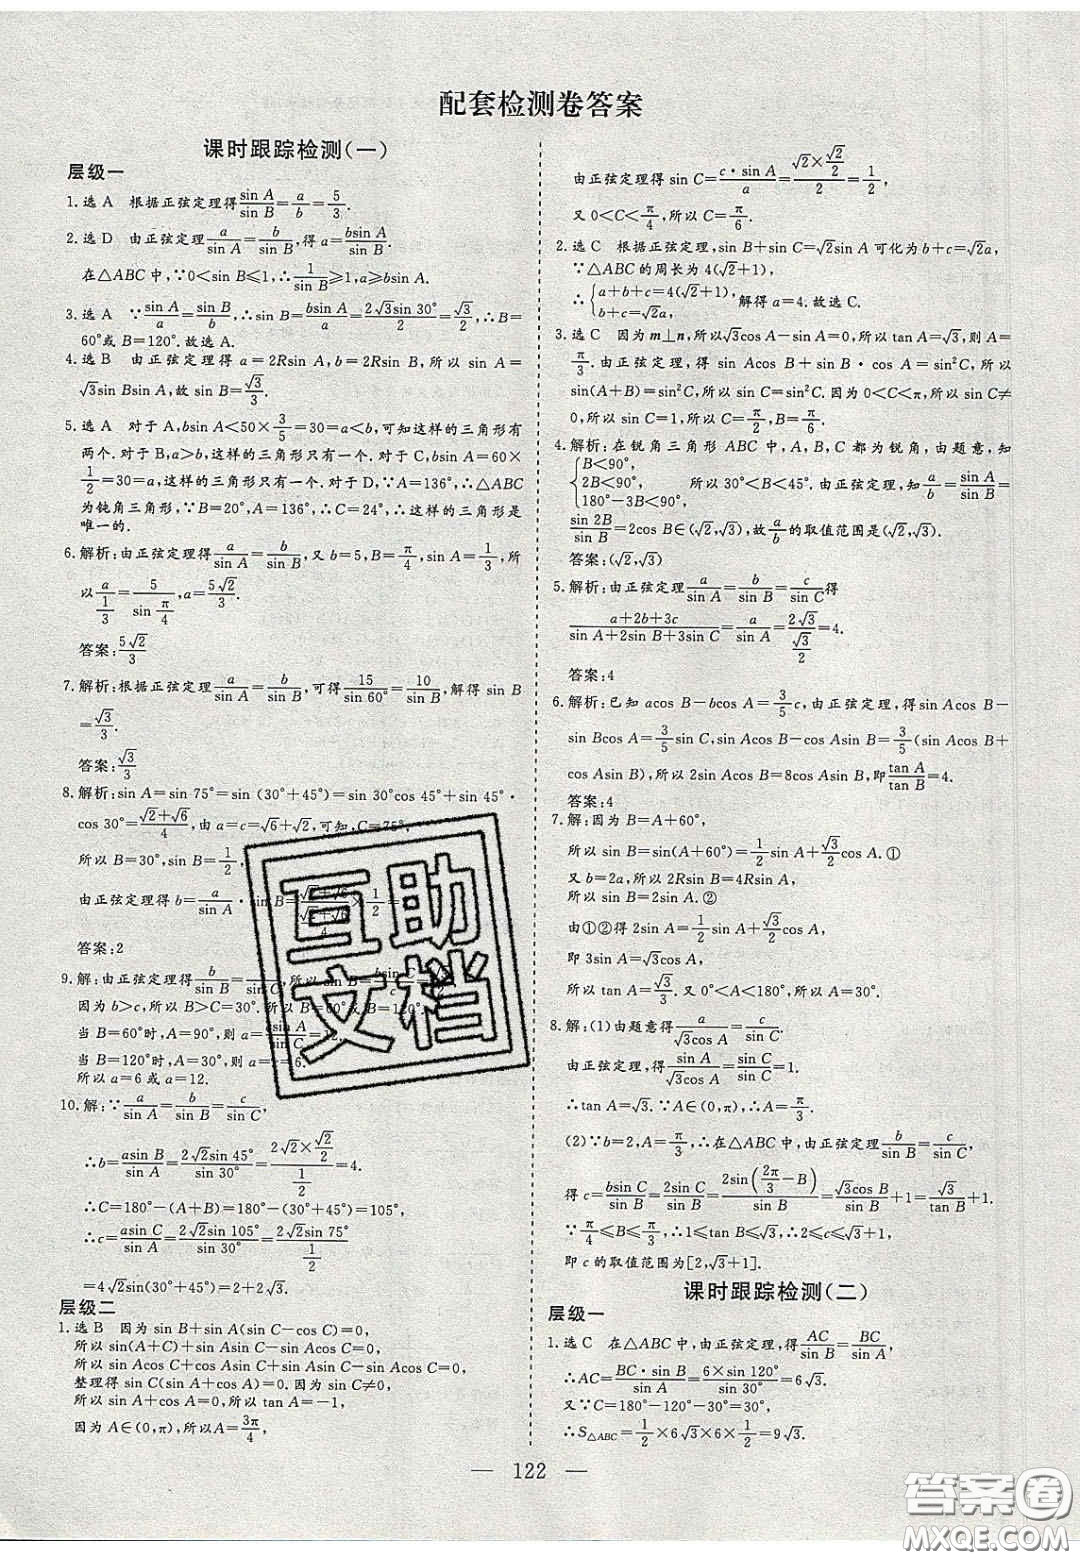 配套检测卷答案
课时跟踪检测(一)
层级一
1.选A 根据正弦定理得sin A/sin B=a/b=5/3.
2.选D 由正弦定理a/sin A=b/sin B,得a=bsin A/sin B.
在△ABC中,∵0<sin B≤1,∴1/sin B≥1,a≥bsin A.
3.选A ∵sin A/a=sin B/b,∴sin B=bsin A/a=2√3sin 30°/2=√3/2,∴B=
60°或B=120°.故选A.
4.选B 由正弦定理得a=2Rsin A,b=2Rsin B,所以sin A=
√3sin Bsin A,故sin B=√3/3.
5.选A 对于A,bsin A<50×3/5=30=a<b,可知这样的三角形有
两个.对于B,a>b,这样的三角形只有一个.对于C,bsin A=60×
1/2=30=a,这样的三角形只有一个.对于D,∵A=136°,∴△ABC
为钝角三角形,∵B=20°,A=136°,∴C=24°,∴这样的三角形是
唯一的.
6.解析:由正弦定理得a/sin A=b/sin B,又b=5,B=π/4,sin A=1/3,所
以a/(1/3)=5/sin π/4,a=5√2/3.
答案:5√2/3
7.解析:根据正弦定理a/sin A=b/sin B,可得15/sin 60°=10/sin B,解得sin B
=√3/3.
答案:√3/3
8.解析:sin A=sin 75°=sin (30°+45°)=sin 30°cos 45°+sin 45°·
cos 30°=(√2+√6)/4,由a=c=√6+√2,可知,C=75°,
所以B=30°,sin B=1/2,
由正弦定理得b=a/sin A·sin B=(√2+√6)/((√2+√6)/4)×1/2=2
答案:2
9.解:由正弦定理得b/sin B=c/sin C,所以sin B=bsin C/c
因为b>c,所以B>C=30°,所以B=60°或B=120°.
当B=60°时,A=90°,则a=csin A/sin C=12.
当B=120°时,A=30°,则a=6.
所以a=6或a=12.
10.解:∵a/sin A=b/sin B=c/sin C,
∴b=asin B/sin A=2√2sin 45°/sin 30°=(2√2×√2/2)/(1/2)=4.
∴C=180°-(A+B)=180°-(30°+45°)=105°,
∴c=asin C/sin A=2√2sin 105°/sin 30°=2√2sin 75°/(1/2)
=4√2sin(30°+45°)=2+2√3.
层级二
1.选B 因为sin B+sin A(sin C-cos C)=0,
所以sin(A+C)+sin Asin C-sin Acos C=0,
所以sin Acos C+cos Asin C+sin Asin C-sin Acos C=0,
整理得sin C(sin A+cos A)=0.因为sin C≠0,
所以sin A+cos A=0,所以tan A=-1,
因为A∈(0,π),所以A=3π/4,
由正弦定理得sin C=c·sin A/a=(√2×√2/2)/2=1/2,
又0<C<π/4,所以C=π/6.
2.选C 根据正弦定理,sin B+sin C=√2sin A可化为b+c=√2a,
∵△ABC的周长为4(√2+1),
∴{a+b+c=4(√2+1),
b+c=√2a, 解得a=4.故选C.
3.选C 因为m⊥n,所以√3cos A-sin A=0,所以tan A=√3,则A=
π/3.由正弦定理,得sin Acos B+sin B·cos A=sin²C,所以
sin(A+B)=sin²C,所以sin C=sin²C.因为0<C<π,所以sin C≠
0,所以sin C=1,所以C=π/2,B=π/6.
4.解析:在锐角三角形ABC中,A,B,C都为锐角,由题意,知
{B<90°,
2B<90°,
180°-3B<90°, 所以30°<B<45°.由正弦定理,知a/b=sin A/sin B=
sin 2B/sin B=2cos B∈(√2,√3),故a/b的取值范围是(√2,√3).
答案:(√2,√3)
5.解析:由正弦定理a/sin A=b/sin B=c/sin C得
(a+2b+3c)/(sin A+2sin B+3sin C)=a/sin A=2√3/(√3/2)=4.
答案:4
6.解析:已知acos B-bcos A=3/5c,由正弦定理,得sin Acos B-
sin Bcos A=3/5sin C,sin Acos B-cos Asin B=3/5(sin Acos B+
cos Asin B),所以2sin Acos B=8cos Asin B,即tan A/tan B=4.
答案:4
7.解:因为B=A+60°,
所以sin B=sin(A+60°)=1/2sin A+√3/2cos A.①
又b=2a,所以2Rsin B=4Rsin A,
所以sin B=2sin A.②
由①②得2sin A=1/2sin A+√3/2cos A,
即3sin A=√3cos A,
所以tan A=√3/3.又0°<A<180°,所以A=30°.
8.解:(1)由题意得a/√3cos A=c/sin C.
由正弦定理得sin A/√3cos A=sin C/sin C=1,
∴tan A=√3.∵A∈(0,π),∴A=π/3.
(2)∵b=2,A=π/3,∴在△ABC中,由正弦定理b/sin B=c/sin C,
得c=bsin C/sin B=2sin C/sin B=2sin(2π/3-B)/sin B=√3cos B/sin B+1=√3/tan B+1.
∵π/4≤B≤π/3,∴1≤tan B≤√3,∴2≤c≤√3+1,
即c的取值范围为[2,√3+1].
课时跟踪检测(二)
层级一
1.选C 在△ABC中,由正弦定理,得AC/sin B=BC/sin A,
∴AC=BC·sin B/sin A=6×sin 120°/sin 30°=6√3.
又∵C=180°-120°-30°=30°,
∴S△ABC=1/2×6√3×6×1/2=9√3.
— 122 —
互助
文档
答案圈
MXQE.COM